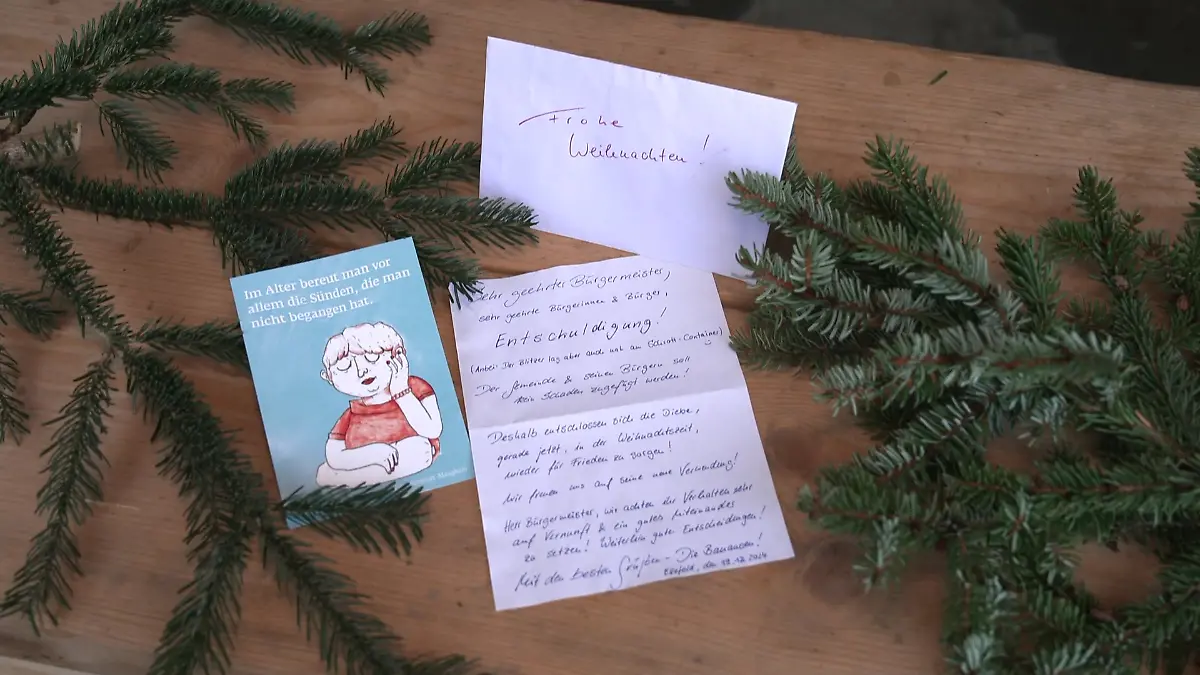 Frohe
Weihnachten!
Im Alter bereut man vor
allem die Sünden, die man
nicht begangen hat.
Sehr geehrter Bürgermeister,
sehr geehrte Bürgerinnen & Bürger,
Entschuldigung!
(Anbei: Der Blitzer lag aber auch nah am Schrott-Container)
Der Gemeinde & seinen Bürgern soll
kein Schaden zugefügt werden!
Deshalb entschlossen sich die Diebe,
gerade jetzt, in der Weihnachtszeit,
wieder für Frieden zu sorgen!
Wir freuen uns auf seine neue Verwendung!
Herr Bürgermeister, wir achten Ihr Verhalten sehr
auf Vernunft & ein gutes Miteinander
zu setzen! Weiterhin gute Entscheidungen!
Mit den besten Grüßen - Die Bananen!
den 19.12.2024